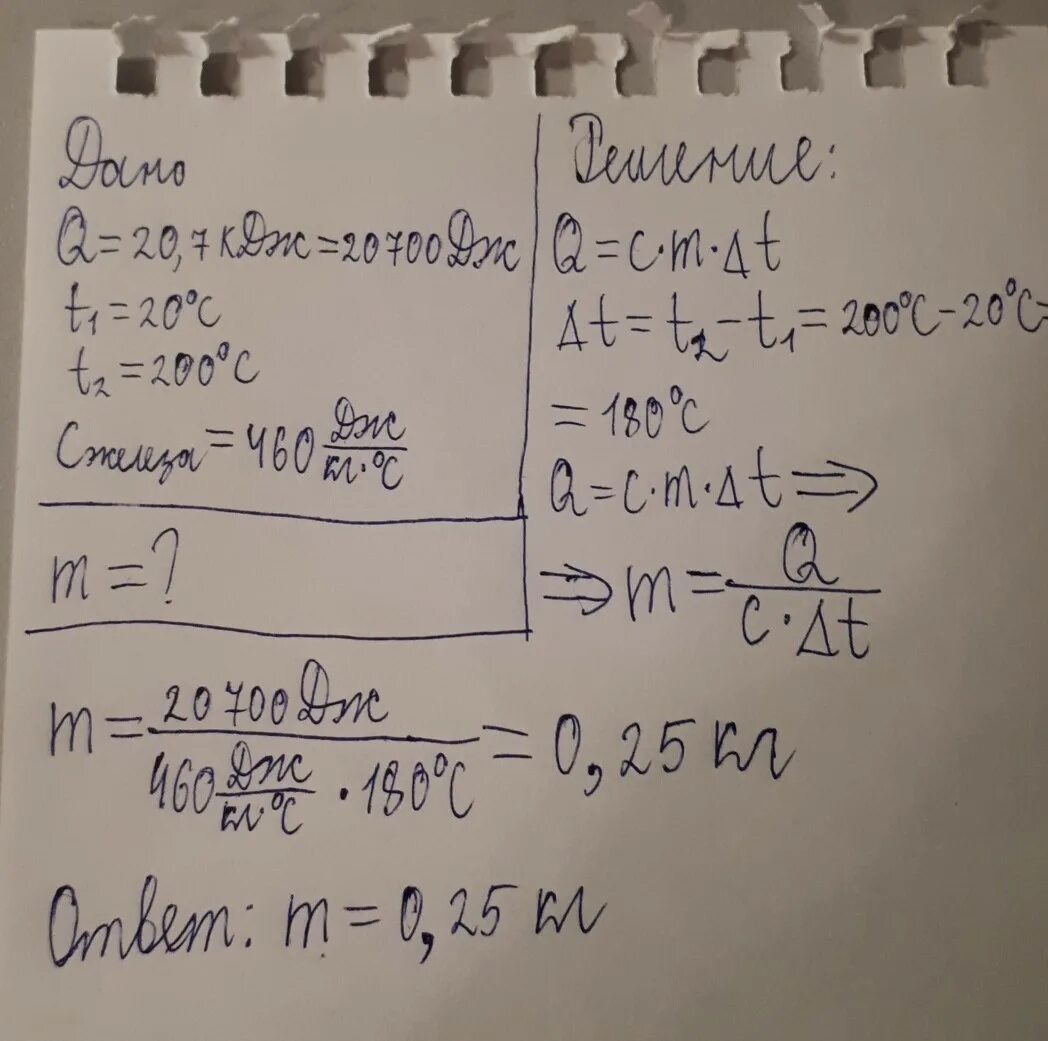 Дано
Q = 20,7 кДж = 20700 Дж
t₁ = 20°C
t₂ = 200°C
Cжелеза = 460 Дж/кг·°C
m = ?
Решение:
Q = c·m·Δt
Δt = t₂ - t₁ = 200°C - 20°C =
= 180°C
Q = c·m·Δt ⇒
⇒ m = Q/c·Δt
m = 20700 Дж/460 Дж/кг·°C · 180°C = 0,25 кг
Ответ: m = 0,25 кг